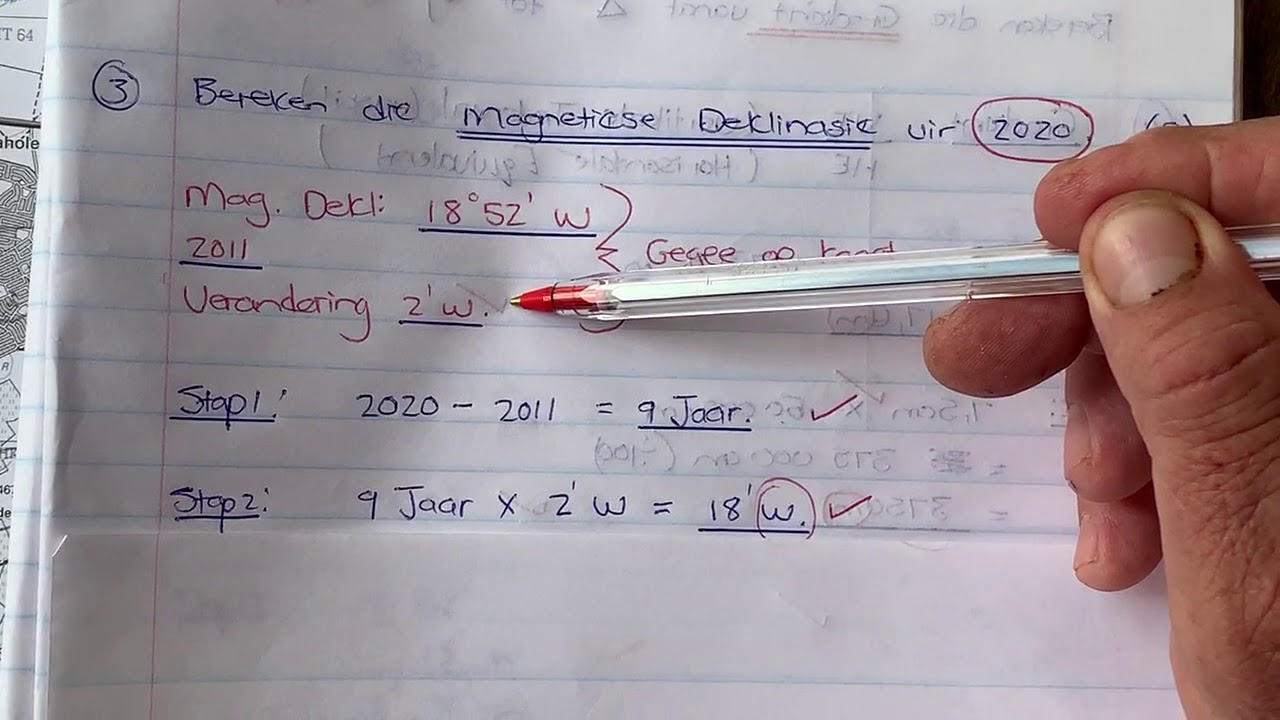 ③ Bereken die Magnetiese Deklinasie vir 2020.
Mag. Dekl: 18°52' W
2011
Gegee op
Verandering 2' W.
Stap 1: 2020 - 2011 = 9 Jaar. ✓
Stap 2: 9 Jaar x 2' W = 18' W. ✓
T 64
ahole